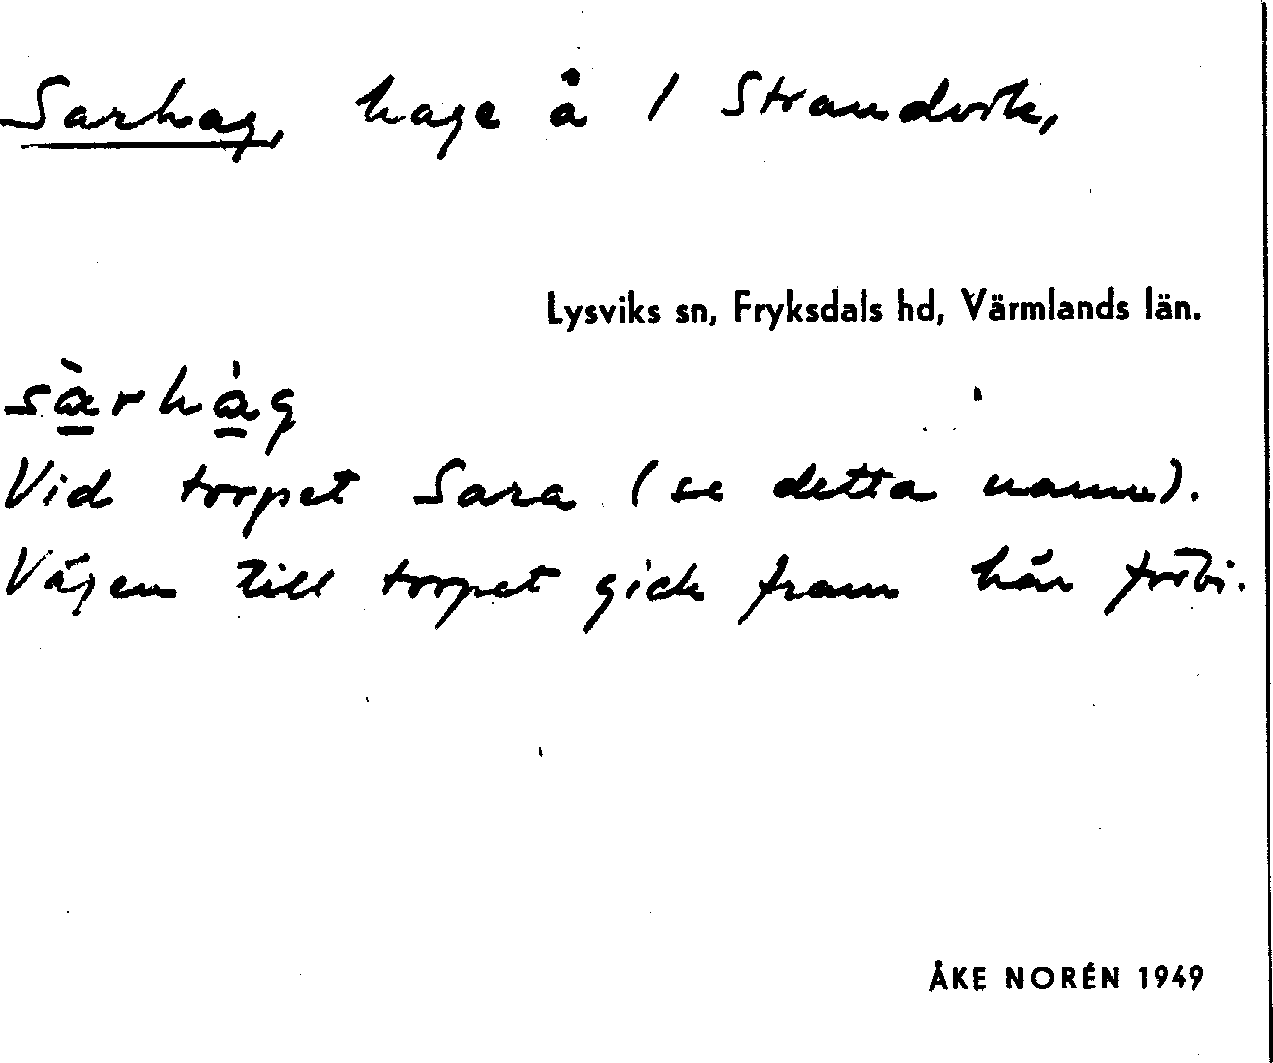 Sarhag, hage å 1 Strandvik,
Lysviks sn, Fryksdals hd, Värmlands län.
sà̱rhȧ̱g
Vid torpet Sara (se detta namn).
Vägen till torpet gick fram här förbi.
ÅKE NORÉN 1949